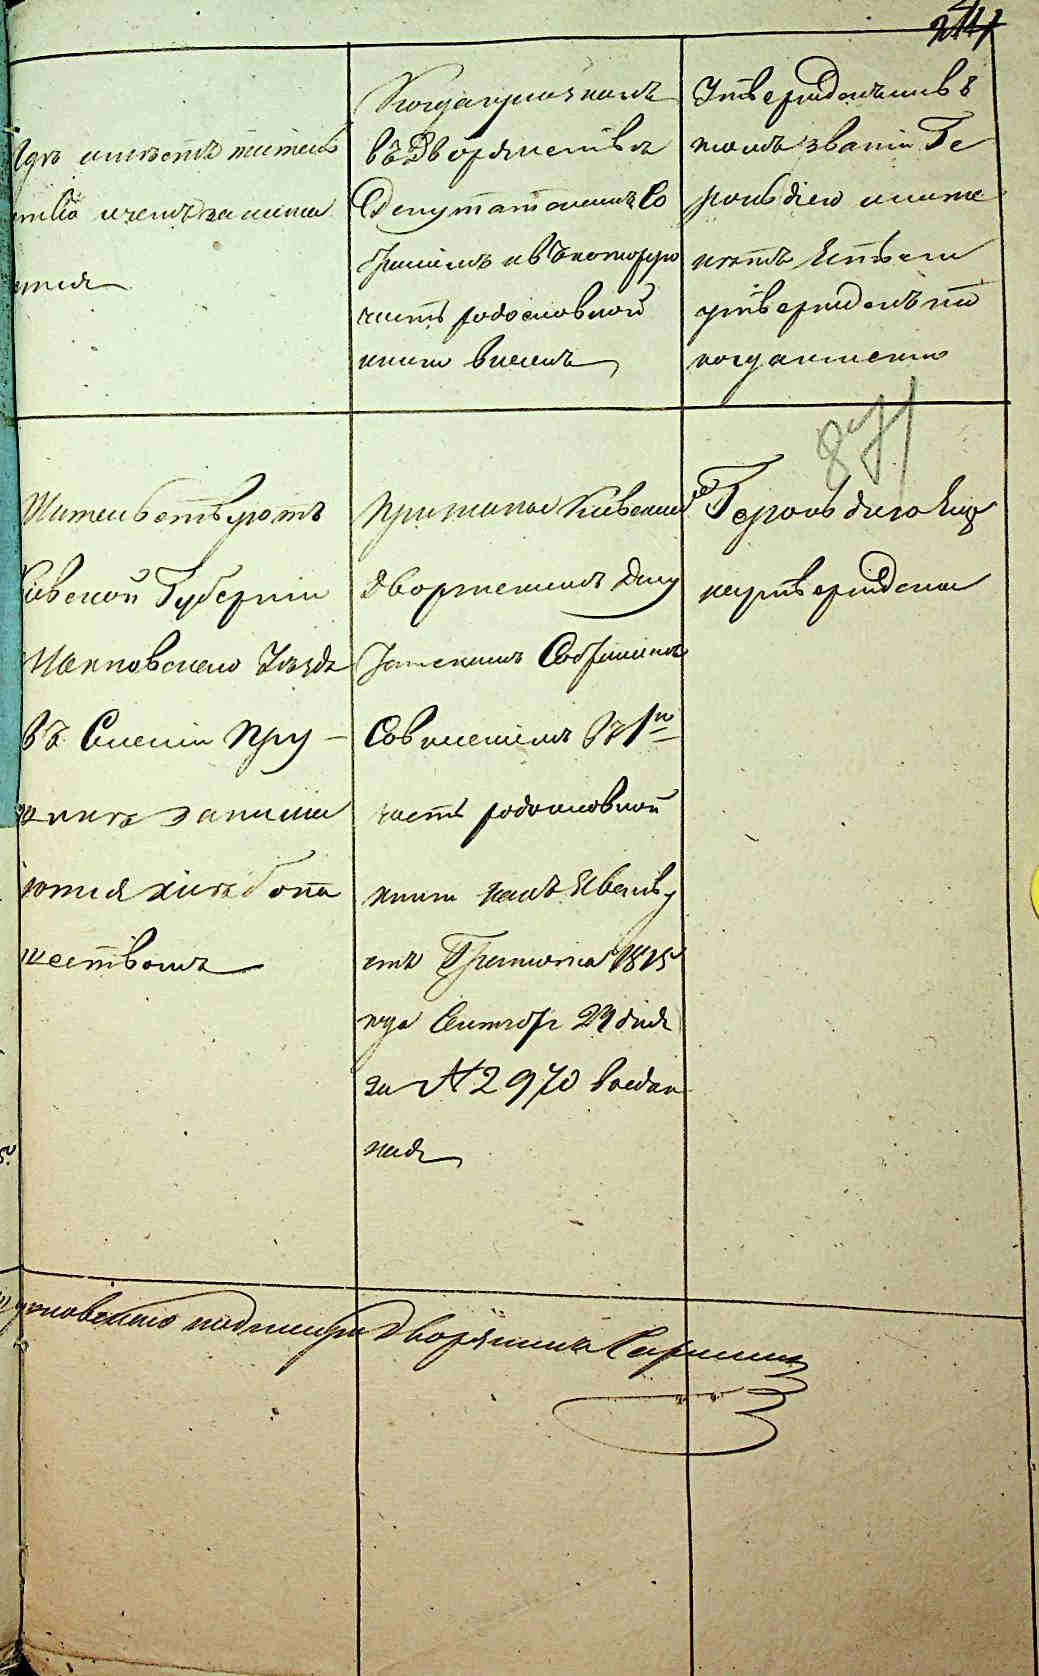 247
Гдѣ имѣетъ житель
ство и чемъ занима
ется
Когда признанъ
въ Дворянствѣ
Депутатскимъ Со
браніемъ и въ которую
часть родословной
книги внесенъ
Утвержденъ ли въ
томъ званіи Ге
рольдіею или же
нѣтъ Если
утвержденъ то
когда именно
Жительствуютъ
Кіевской Губерніи
Липовецкаго Уѣзда
въ Селеніи Пру
занима
ются хлѣбопа
шествомъ
Признаны Кіевским
Дворянскимъ Депу
татскимъ Собраніемъ
Со внесеніемъ въ 1ю
часть родословной
книги какъ явству
етъ Грамота 1815
года Сентябр 29 дня
за № 2970 выдан
ная
871
Герольдіею Еще
не утверждены
подписалъ Дворянинъ